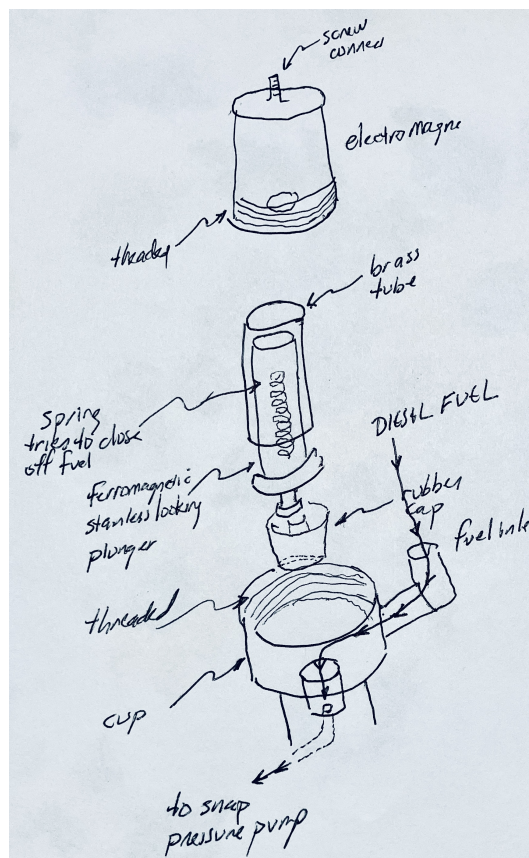 screw
connec
electromagne
threaded
brass
tube
spring
tries to close
off fuel
DIESEL FUEL
ferromagnetic
stainless looking
plunger
rubber
cap
fuel inle
threaded
cup
to snap
pressure pump